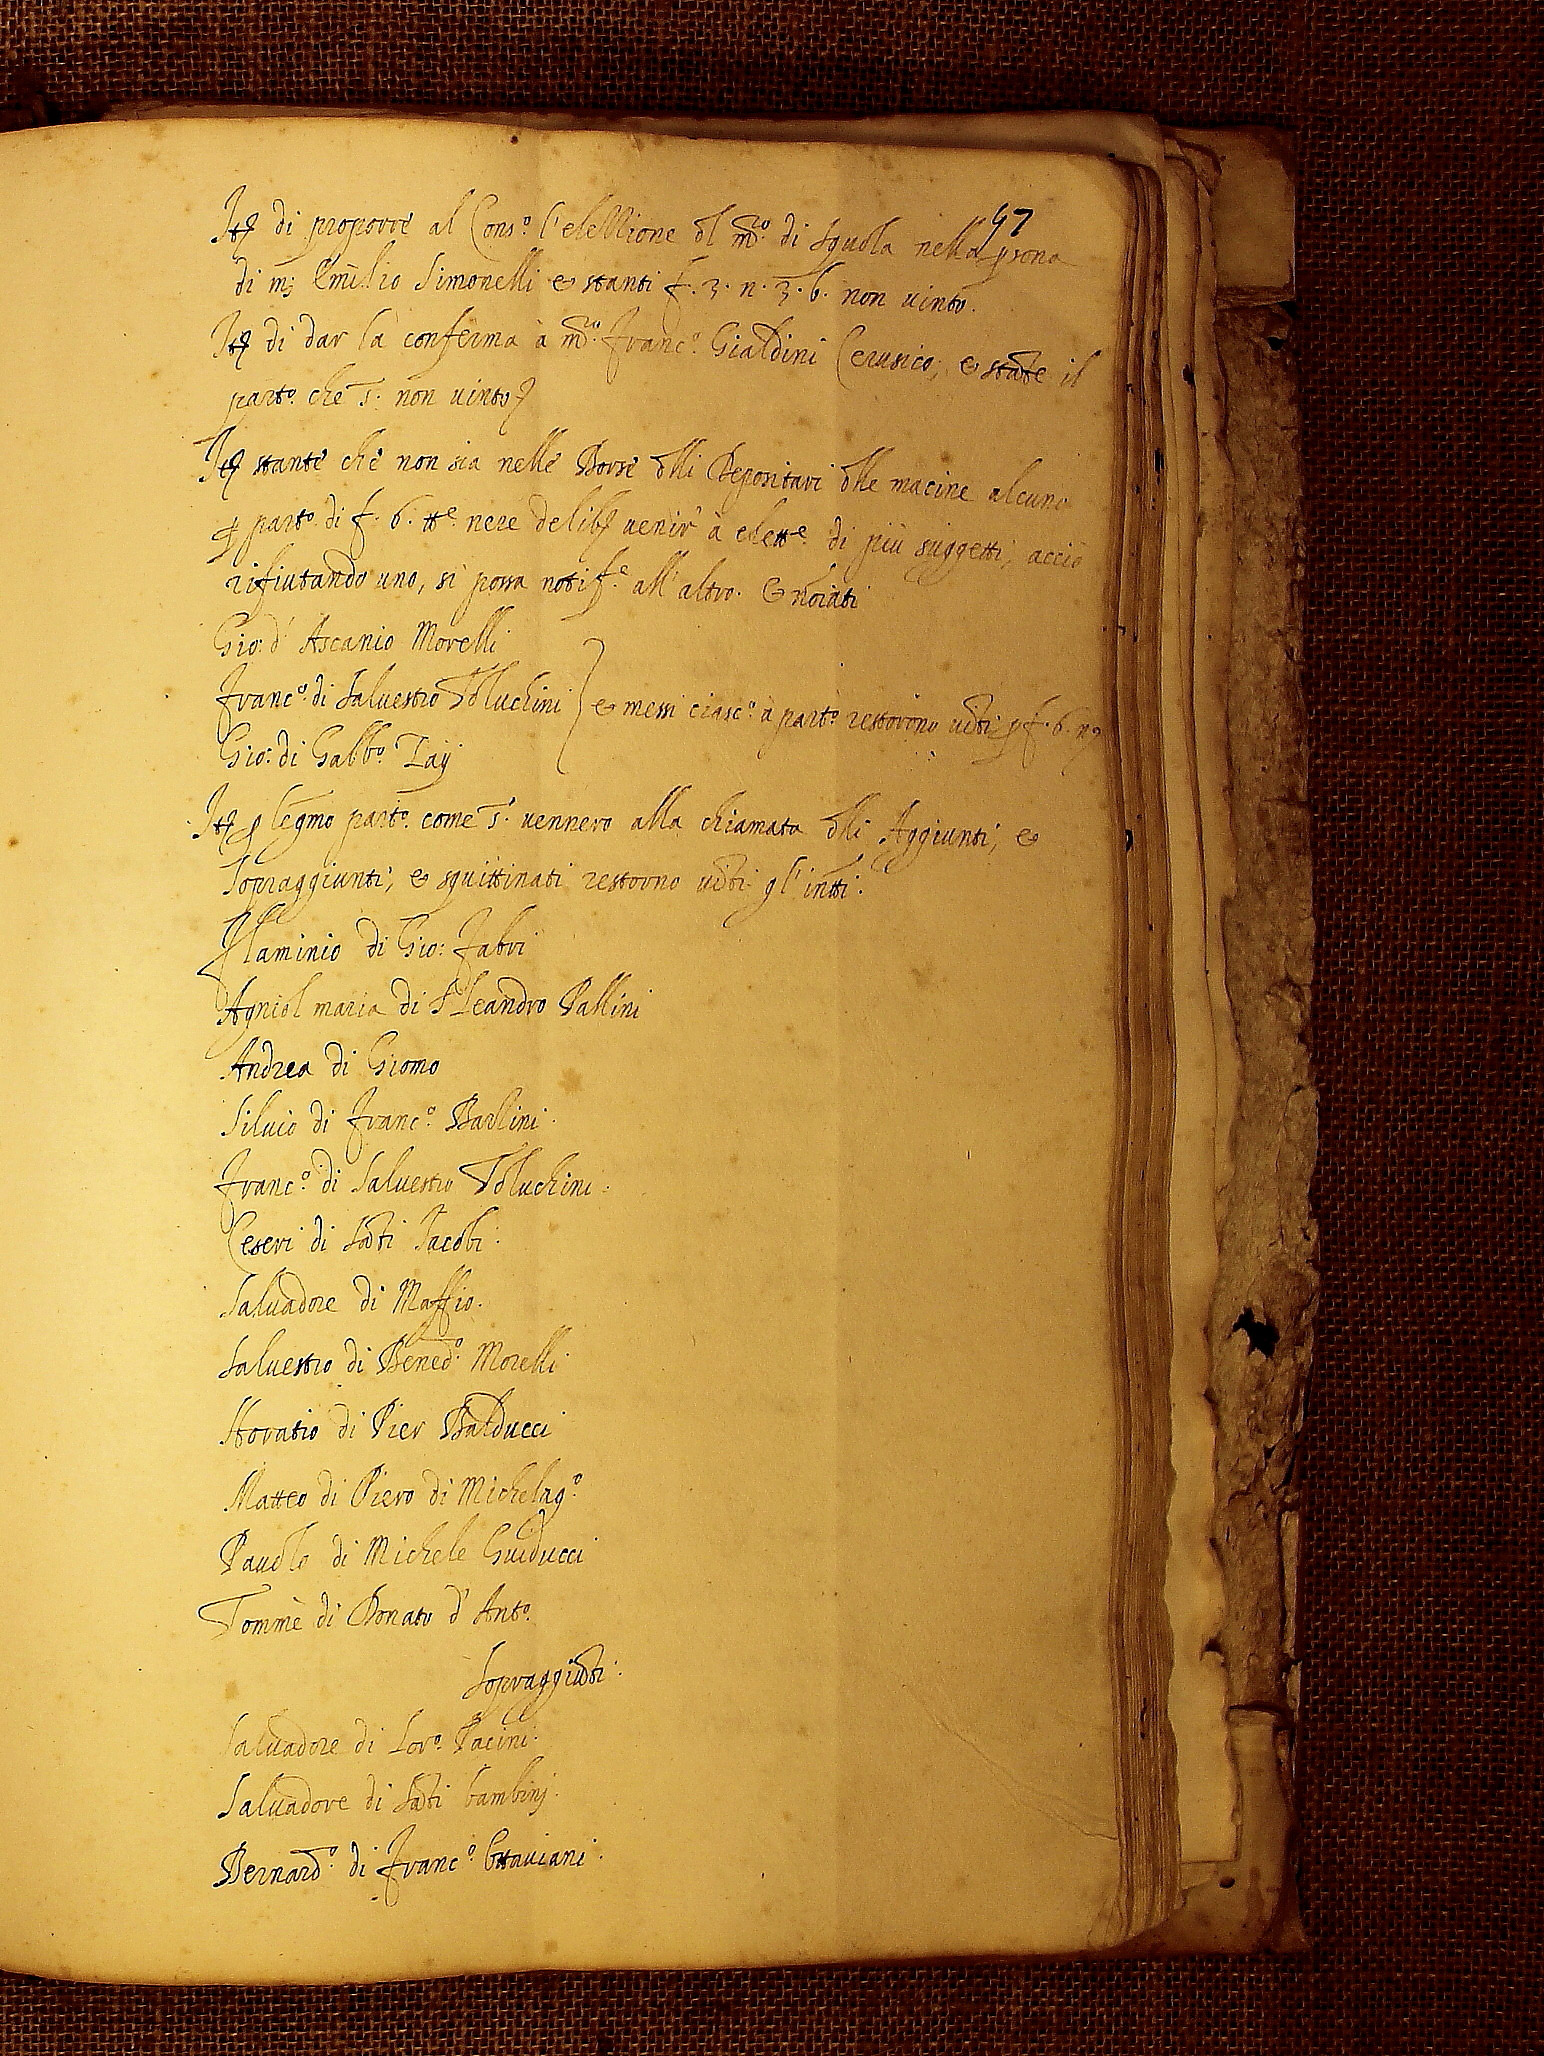 47
Itt di proporre al Cons.o l'elettione dl m.ro di squola nella psona
di m; Emilio Simonelli e stanti f. 3. n. 3. b. non vinto.
Itt di dar la conferma à m.ro Franc.o Gialdini Cerusico; e state il
part.o che s. non vinto
Itt stante che non sia nelle Borse dlli Depositari dlle macine alcuno
p part.o di f. 6. tt.e nere delib venir à elett.e di più suggetti, acciò
rifiutando uno, si possa notif.e all'altro. E noiati
Gio: d'Ascanio Morelli
Franc.o di Salvestro Tolluchini } e messi ciasc.o à part.o restorono viti p f. 6. n
Gio: di Gabb.o Taij
Itt p legmo part.o come s. vennero alla chiamata dlli Aggiunti, e
Sopraggiunti, e squittinati restorno viti gl'intti.
Flaminio di Gio: Fabri
Agniol maria di Leandro Pallini
Andrea di Giomo
Silvio di Franc.o Barlini.
Franc.o di Salvestro Tolluchini.
Ceseri di Sati Jacobi.
Salvadore di Maffio.
Salvestro di Bened.o Morelli
Horatio di Pier Balducci
Matteo di Piero di Michelag.o
Pauolo di Michele Guiducci
Tomme di Donato d'Ant.o
Sopraggiuti.
Salvadore di Lor.o Pacini.
Salvadore di Sati bambinj.
Bernard.o di Franc.o Ottaviani.